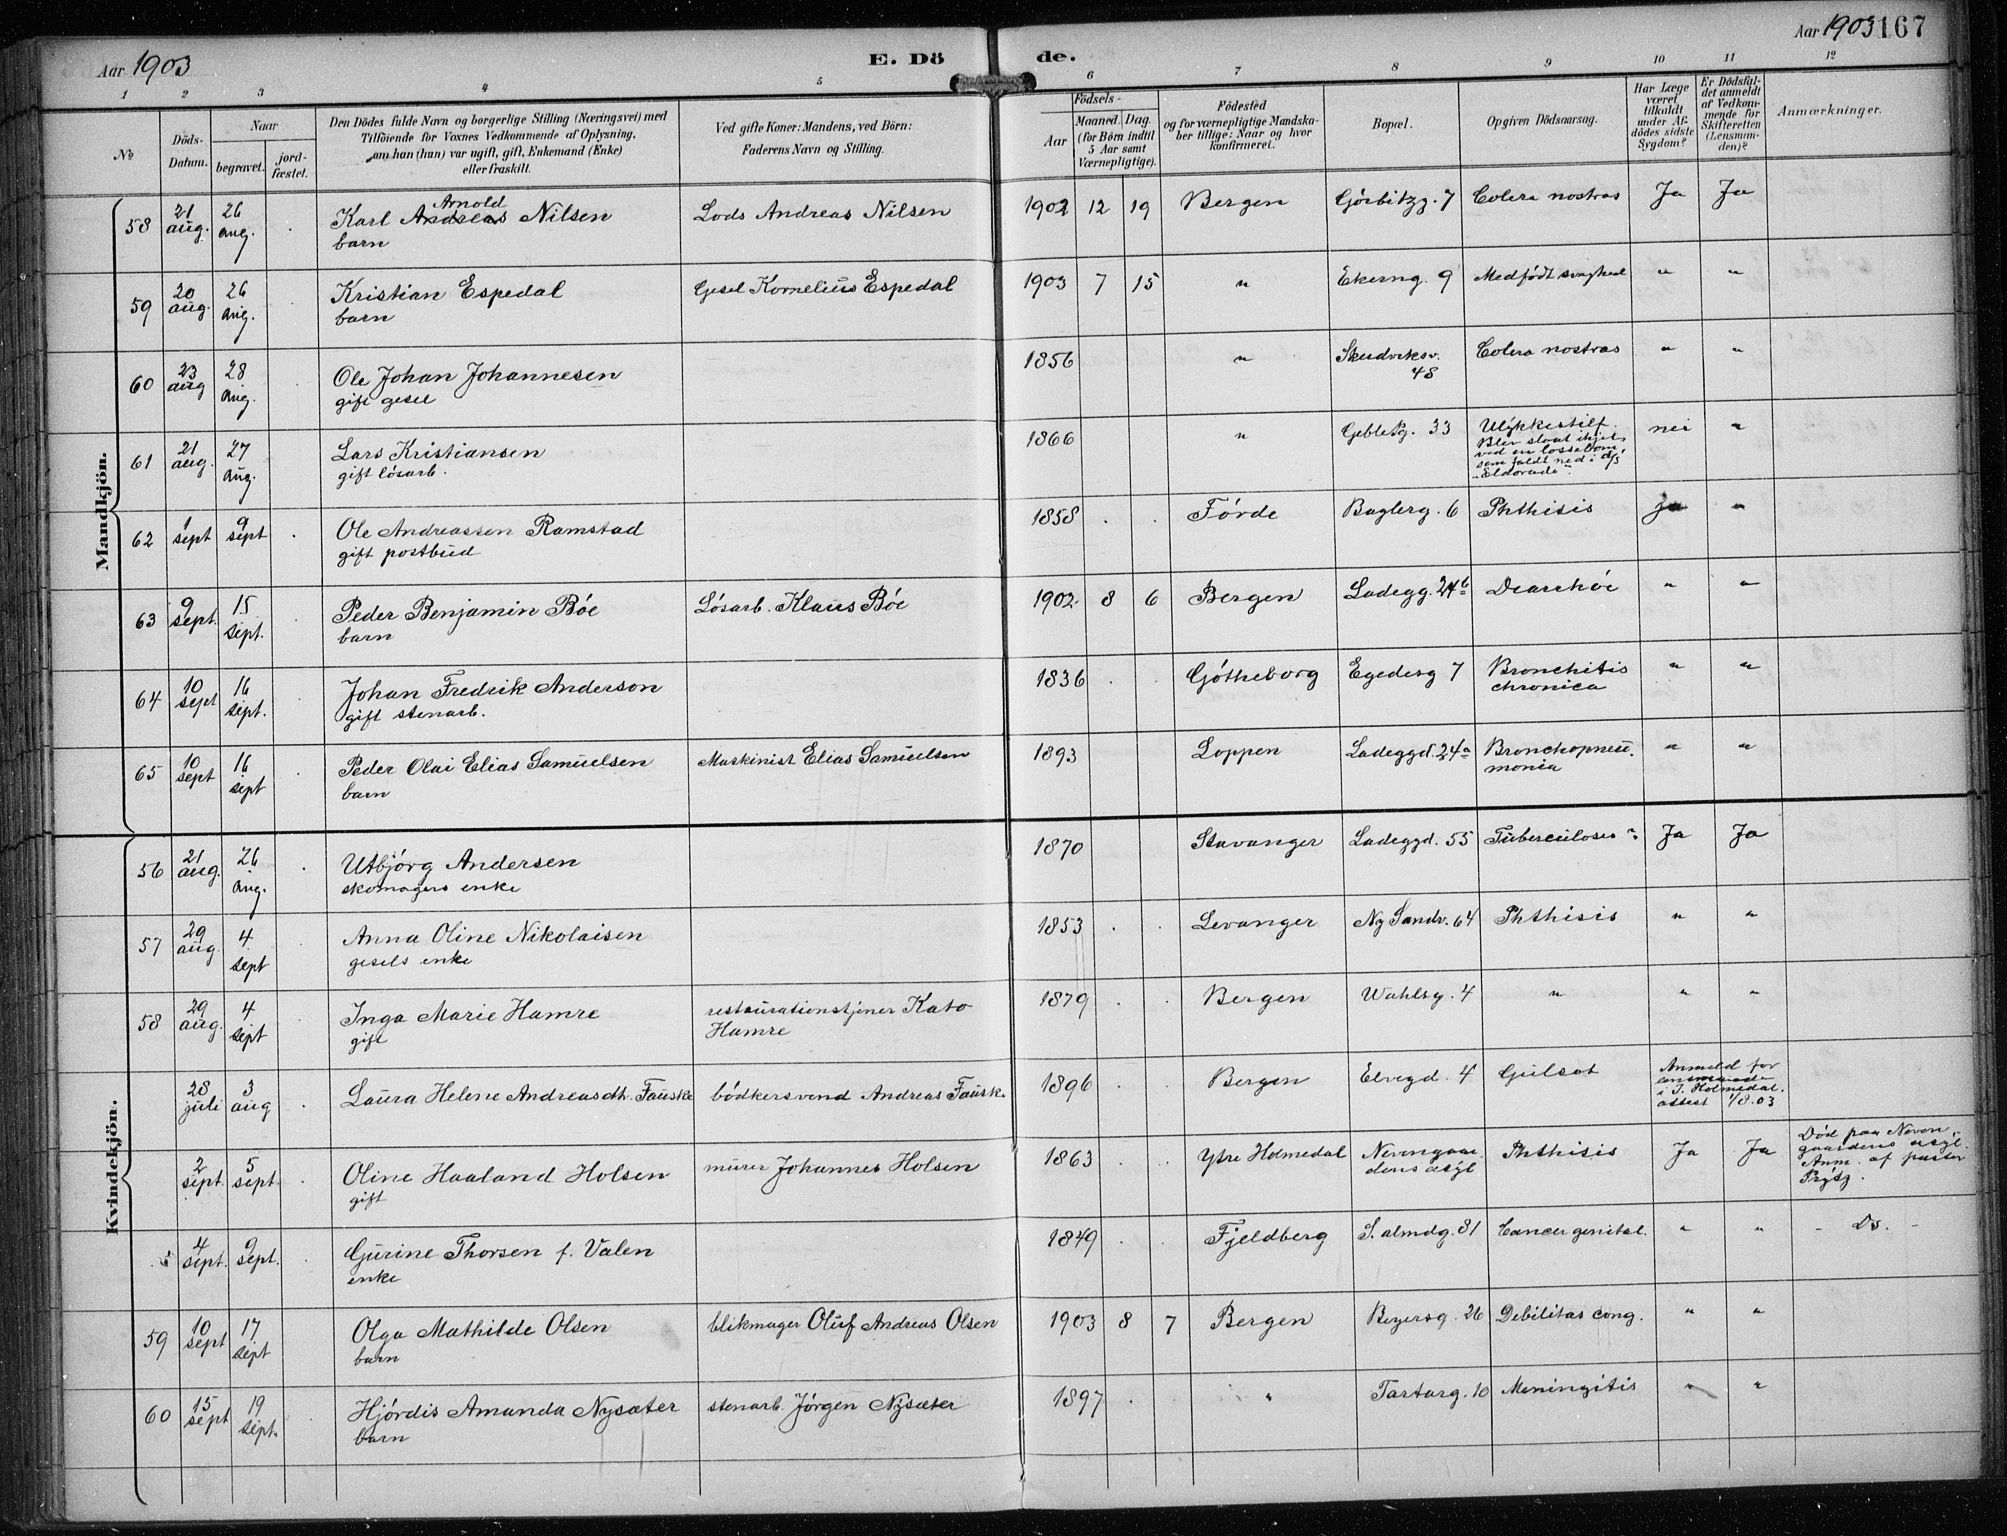 Aar 1903
E. Dö
de.
Aar 1903 167
1 2 3 4 5 6 7 8 9 10 11 12
No
Döds-Datum.
Naar
begravet.
jord-fæstet.
Den Dödes fulde Navn og borgerlige Stilling (Næringsvei) med
Tilföiende for Voxnes Vedkommende af Oplysning,
om han (hun) var ugift, gift, Enkemand (Enke)
eller fraskilt.
Ved gifte Koner: Mandens, ved Börn:
Faderens Navn og Stilling.
Födsels-
Aar
Maaned. Dag.
(for Börn indtil
5 Aar samt
Værnepligtige).
Födested
og for værnepligtige Mandska-
ber tillige: Naar og hvor
konfirmeret.
Bopæl.
Opgiven Dödsaarsag.
Har Læge
været
tilkaldt
under Af-
dödes sidste
Sygdom?
Er Dödsfal-
det anmeldt
af Vedkom-
mende for
Skifteretten
(Lensman-
den)?
Anmærkninger.
Mandkjön.
58 21 aug. 26 aug. Karl Andreas Arnold Nilsen Lods Andreas Nilsen 1902 12 19 Bergen Görbitzg. 7 Colera nostras Ja Ja
barn
59 20 aug. 26 aug. Kristian Espedal Gesel Kornelius Espedal 1903 7 15 " Ekerng. 9 Medfödt svaghed " "
barn
60 23 aug 28 aug. Ole Johan Johannesen 1856 " Skudeviksv. 48 Colera nostras " "
gift gesel
61 21 aug. 27 aug. Lars Kristiansen 1866 " Gebleg. 33 Ulykkestilf. nei "
gift lösarb.
Blev slaat ihjel
ved en lossebom
som faldt ned i d/s
"Eldorado".
62 1 sept 9 sept Ole Andreassen Ramstad 1858 Förde Baglerg. 6 Phthisis ja "
gift postbud
63 9 sept. 15 sept. Peder Benjamin Böe Lösarb. Klaus Böe 1902. 8 6 Bergen Ladegg. 24b Diarrhöe " "
barn
64 10 sept 16 sept. Johan Fredrik Anderson 1836 Götheborg Egedesg 7 Bronchitis chronica " "
gift stenarb.
65 10 sept 16 sept Peder Olai Elias Samuelsen Maskinist Elias Samuelsen 1893 Loppen Ladeggd. 24a Bronchopneu.monia " "
barn
Kvindekjön.
56 21 aug. 26 aug. Utbjörg Andersen 1870 Stavanger Ladeggd. 55 Tuberculoses Ja Ja
skomagers enke
57 29 aug. 4 sept Anna Oline Nikolaisen 1853 Levanger Ny Sandv. 64 Phthisis " "
gesels enke
58 29 aug. 4 sept Inga Marie Hamre restaurationstjener Kato Hamre 1879 Bergen Wahlsg. 4 " " "
gift
28 juli 3 aug Laura Helene Andreasdtr. Fauske bödkersvend Andreas Fauske 1896 Bergen Elvegd. 4 Gulsot
Anmeld for
i Holmedal.
attest 1/8.03
2 sept. 5 sept. Oline Haaland Holsen murer Johannes Holsen 1863 Ytre Holmedal Nevengaardens asyl Phthisis Ja Ja
gift
Död paa Neven
gaardens asyl.
Anm. af pastor
4 sept. 9 sept. Gurine Thorsen f. Valen 1849 Fjeldberg S. almdg. 81 Cancer genital. " " - Do. -
enke
59 10 sept 17 sept Olga Mathilde Olsen blikmager Oluf Andreas Olsen 1903 8 7 Bergen Beyersg. 26 Debilitas cong. " "
barn
60 15 sept 19 sept. Hjördis Amanda Nysæter stenarb. Jörgen Nysæter 1897 " Tartarg. 10 Meningitis " "
barn